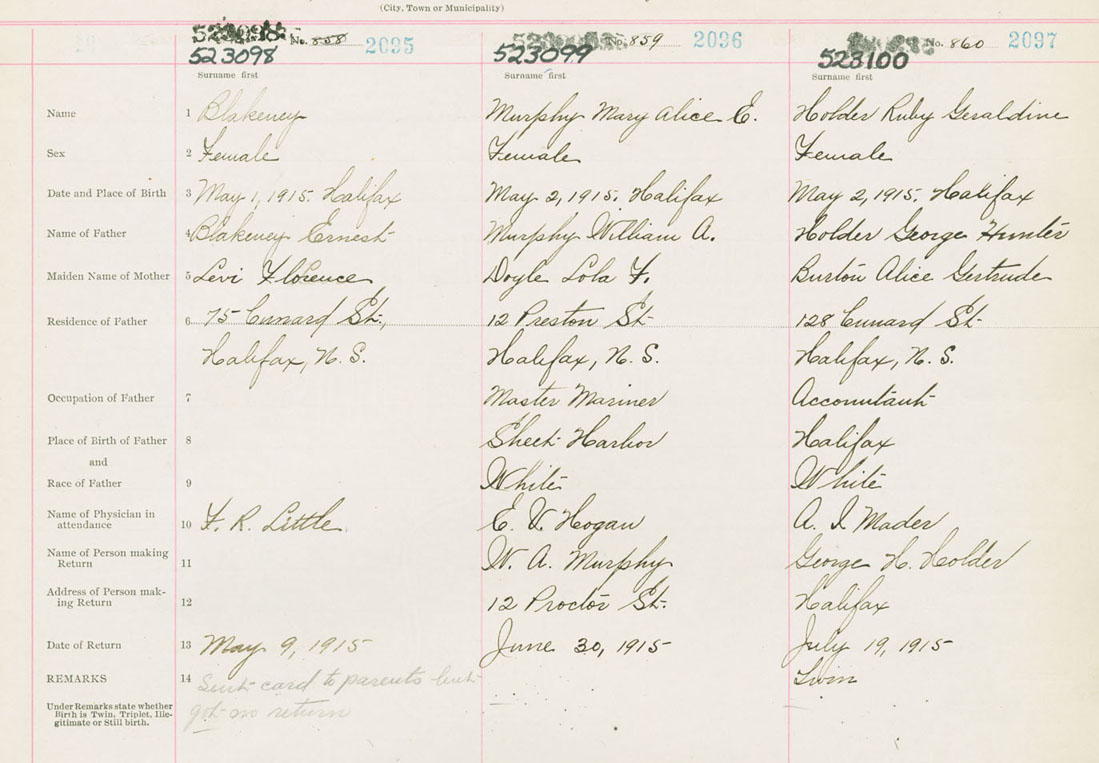 (City, Town or Municipality)
523098 No. 858 2035
523098
Surname first
523099 No. 859 2036
Surname first
No. 860 2037
523100
Surname first
Name 1 Blakeney Murphy Mary Alice E. Holder Ruby Geraldine
Sex 2 Female Female Female
Date and Place of Birth 3 May 1, 1915. Halifax May 2, 1915. Halifax May 2, 1915. Halifax
Name of Father 4 Blakeney Ernest Murphy William A. Holder George Hunter
Maiden Name of Mother 5 Levi Florence Doyle Lola F. Burton Alice Gertrude
Residence of Father 6 75 Cunard St., 12 Preston St. 128 Cunard St.
Halifax, N. S. Halifax, N. S. Halifax, N. S.
Occupation of Father 7 Master Mariner Accountant
Place of Birth of Father 8 Sheet Harbor Halifax
and
Race of Father 9 White White
Name of Physician in
attendance 10 F. R. Little E. V. Hogan A. I. Mader
Name of Person making
Return 11 W. A. Murphy George H. Holder
Address of Person mak-
ing Return 12 12 Proctor St. Halifax
Date of Return 13 May 9, 1915 June 30, 1915 July 19, 1915
REMARKS 14 Sent card to parents but Twin
got no return
Under Remarks state whether
Birth is Twin, Triplet, Ille-
gitimate or Still birth.